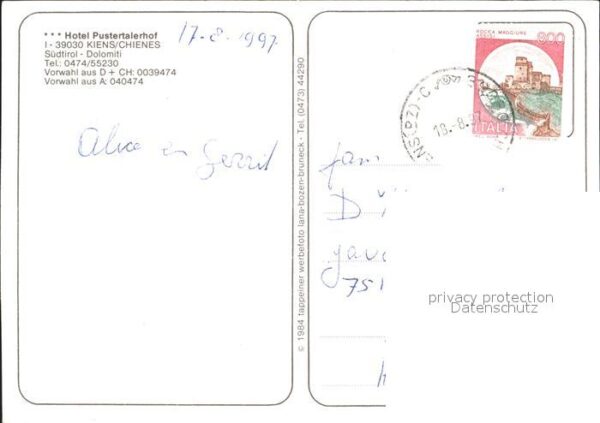 *** Hotel Pustertalerhof
I - 39030 KIENS/CHIENES
Südtirol - Dolomiti
Tel.: 0474/55230
Vorwahl aus D + CH: 0039474
Vorwahl aus A: 040474
17-8-1997
Alice en Gerrit
© 1984 tappeiner werbefoto lana-bozen-bruneck - Tel. (0473) 44290
ROCCA MAGGIORE
ASSISI
800
ITALIA
18.-8.9
Fam
D
Jav
751
privacy protection
Datenschutz